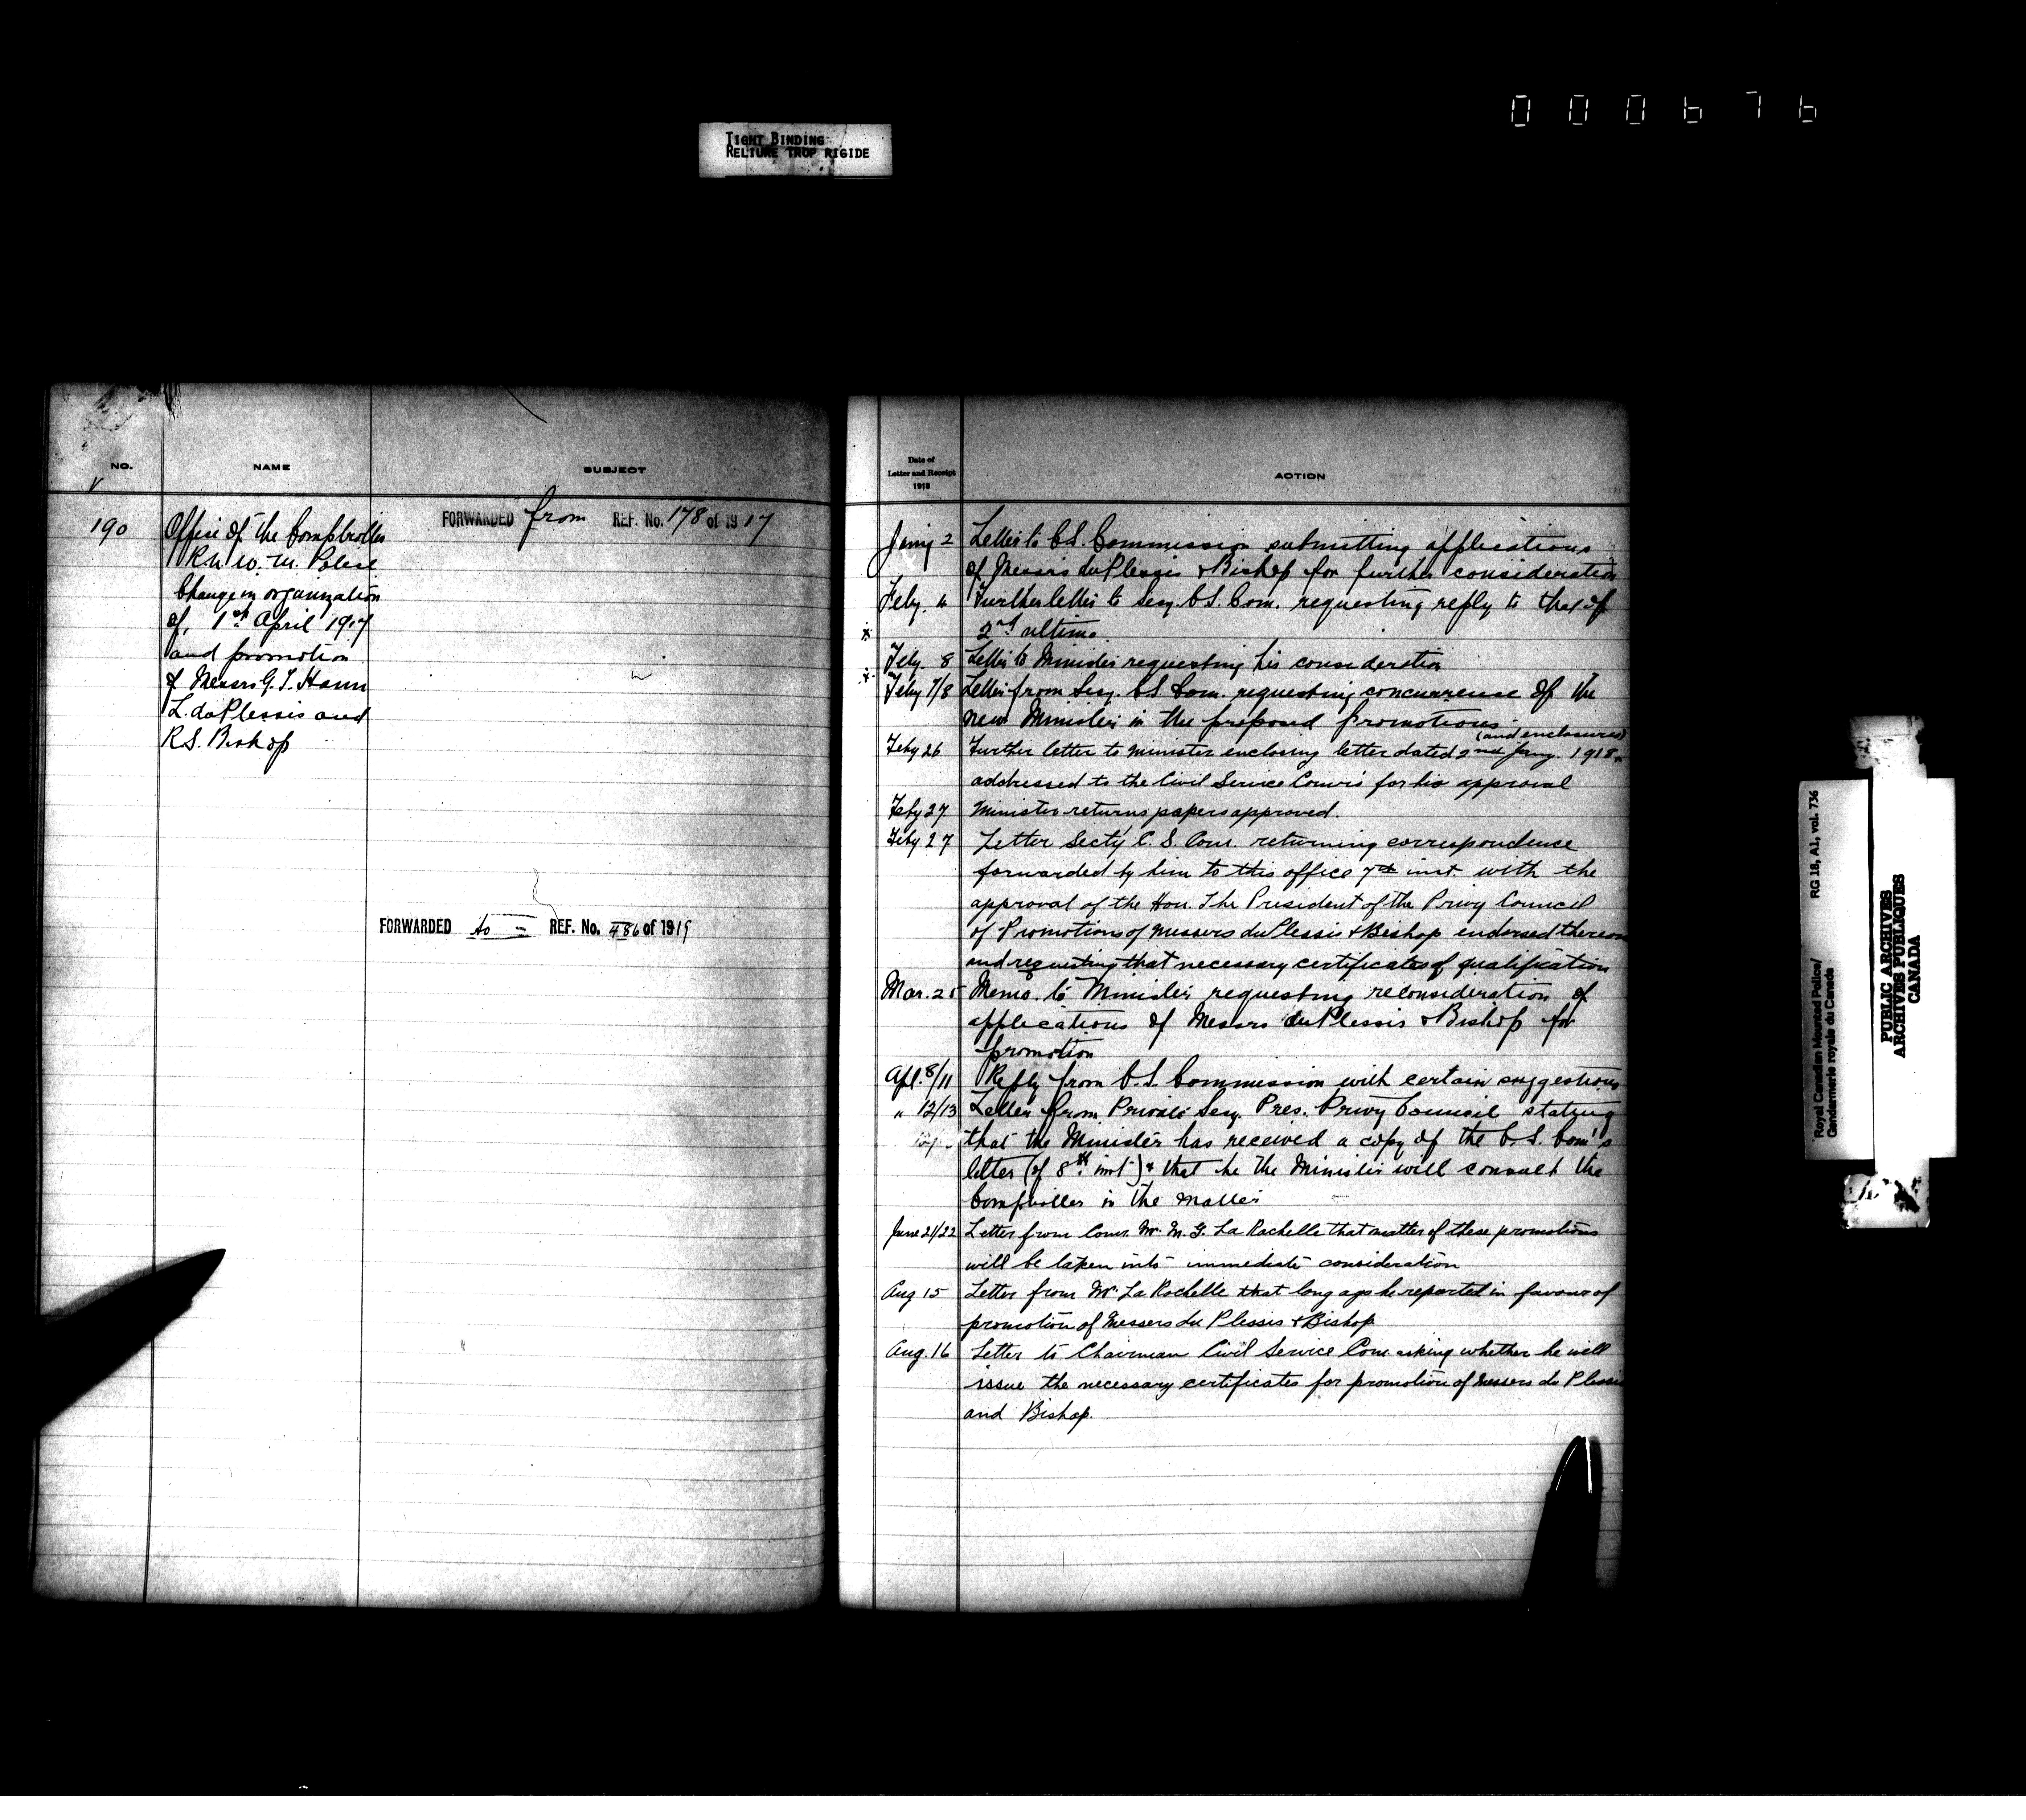 000676
TIGHT BINDING
RELIURE TROP RIGIDE
NO.
NAME
SUBJECT
190
Office of the Comptroller
R.N.W.M. Police
Change in organization
of, 1st April 1917
and promotion
of Messrs G.T. Hann
L. duPlessis and
R.S. Bishop
FORWARDED from REF. No. 178 of 1917
FORWARDED to = REF. No. 486 of 1919
Date of
Letter and Receipt
1918
ACTION
Jany 2 Letter to C.S. Commission submitting applications
of Messrs duPlessis & Bishop for further consideration
Feby. 4 Further letter to Secy. C.S. Com. requesting reply to that of
2nd ultimo.
Feby. 8 Letter to Minister requesting his consideration
Feby 7/8 Letter from Secy. C.S. Com. requesting concurrence of the
new Minister in the proposed promotions.
(and enclosures)
Feby 26 Further letter to Minister enclosing letter dated 2nd Jany. 1918
addressed to the Civil Service Comm's for his approval
Feby 27 Minister returns papers approved.
Feby 27 Letter Secty C.S. Com. returning correspondence
forwarded by him to this office 7th inst. with the
approval of the Hon. The President of the Privy Council
of Promotions of Messrs duPlessis & Bishop endorsed thereon
and requesting that necessary certificates of qualification
Mar. 25 Memo. to Minister requesting reconsideration of
applications of Messrs duPlessis & Bishop for
promotion
Apl. 8/11 Reply from C.S. Commission with certain suggestions
" 12/13 Letter from Private Secy. Pres. Privy Council stating
that the Minister has received a copy of the C.S. Com's
letter (of 8th inst) & that he the Minister will consult the
Comptroller in the matter
June 21/22 Letter from Comr. Mr. M.G. La Rochelle that matter of these promotions
will be taken into immediate consideration
Aug 15 Letter from Mr. La Rochelle that long ago he reported in favour of
promotion of Messrs du Plessis & Bishop
Aug. 16 Letter to Chairman Civil Service Com. asking whether he will
issue the necessary certificates for promotion of Messrs du Plessis
and Bishop.
Royal Canadian Mounted Police/
Gendarmerie royale du Canada
RG 18, A1, vol. 736
PUBLIC ARCHIVES
ARCHIVES PUBLIQUES
CANADA